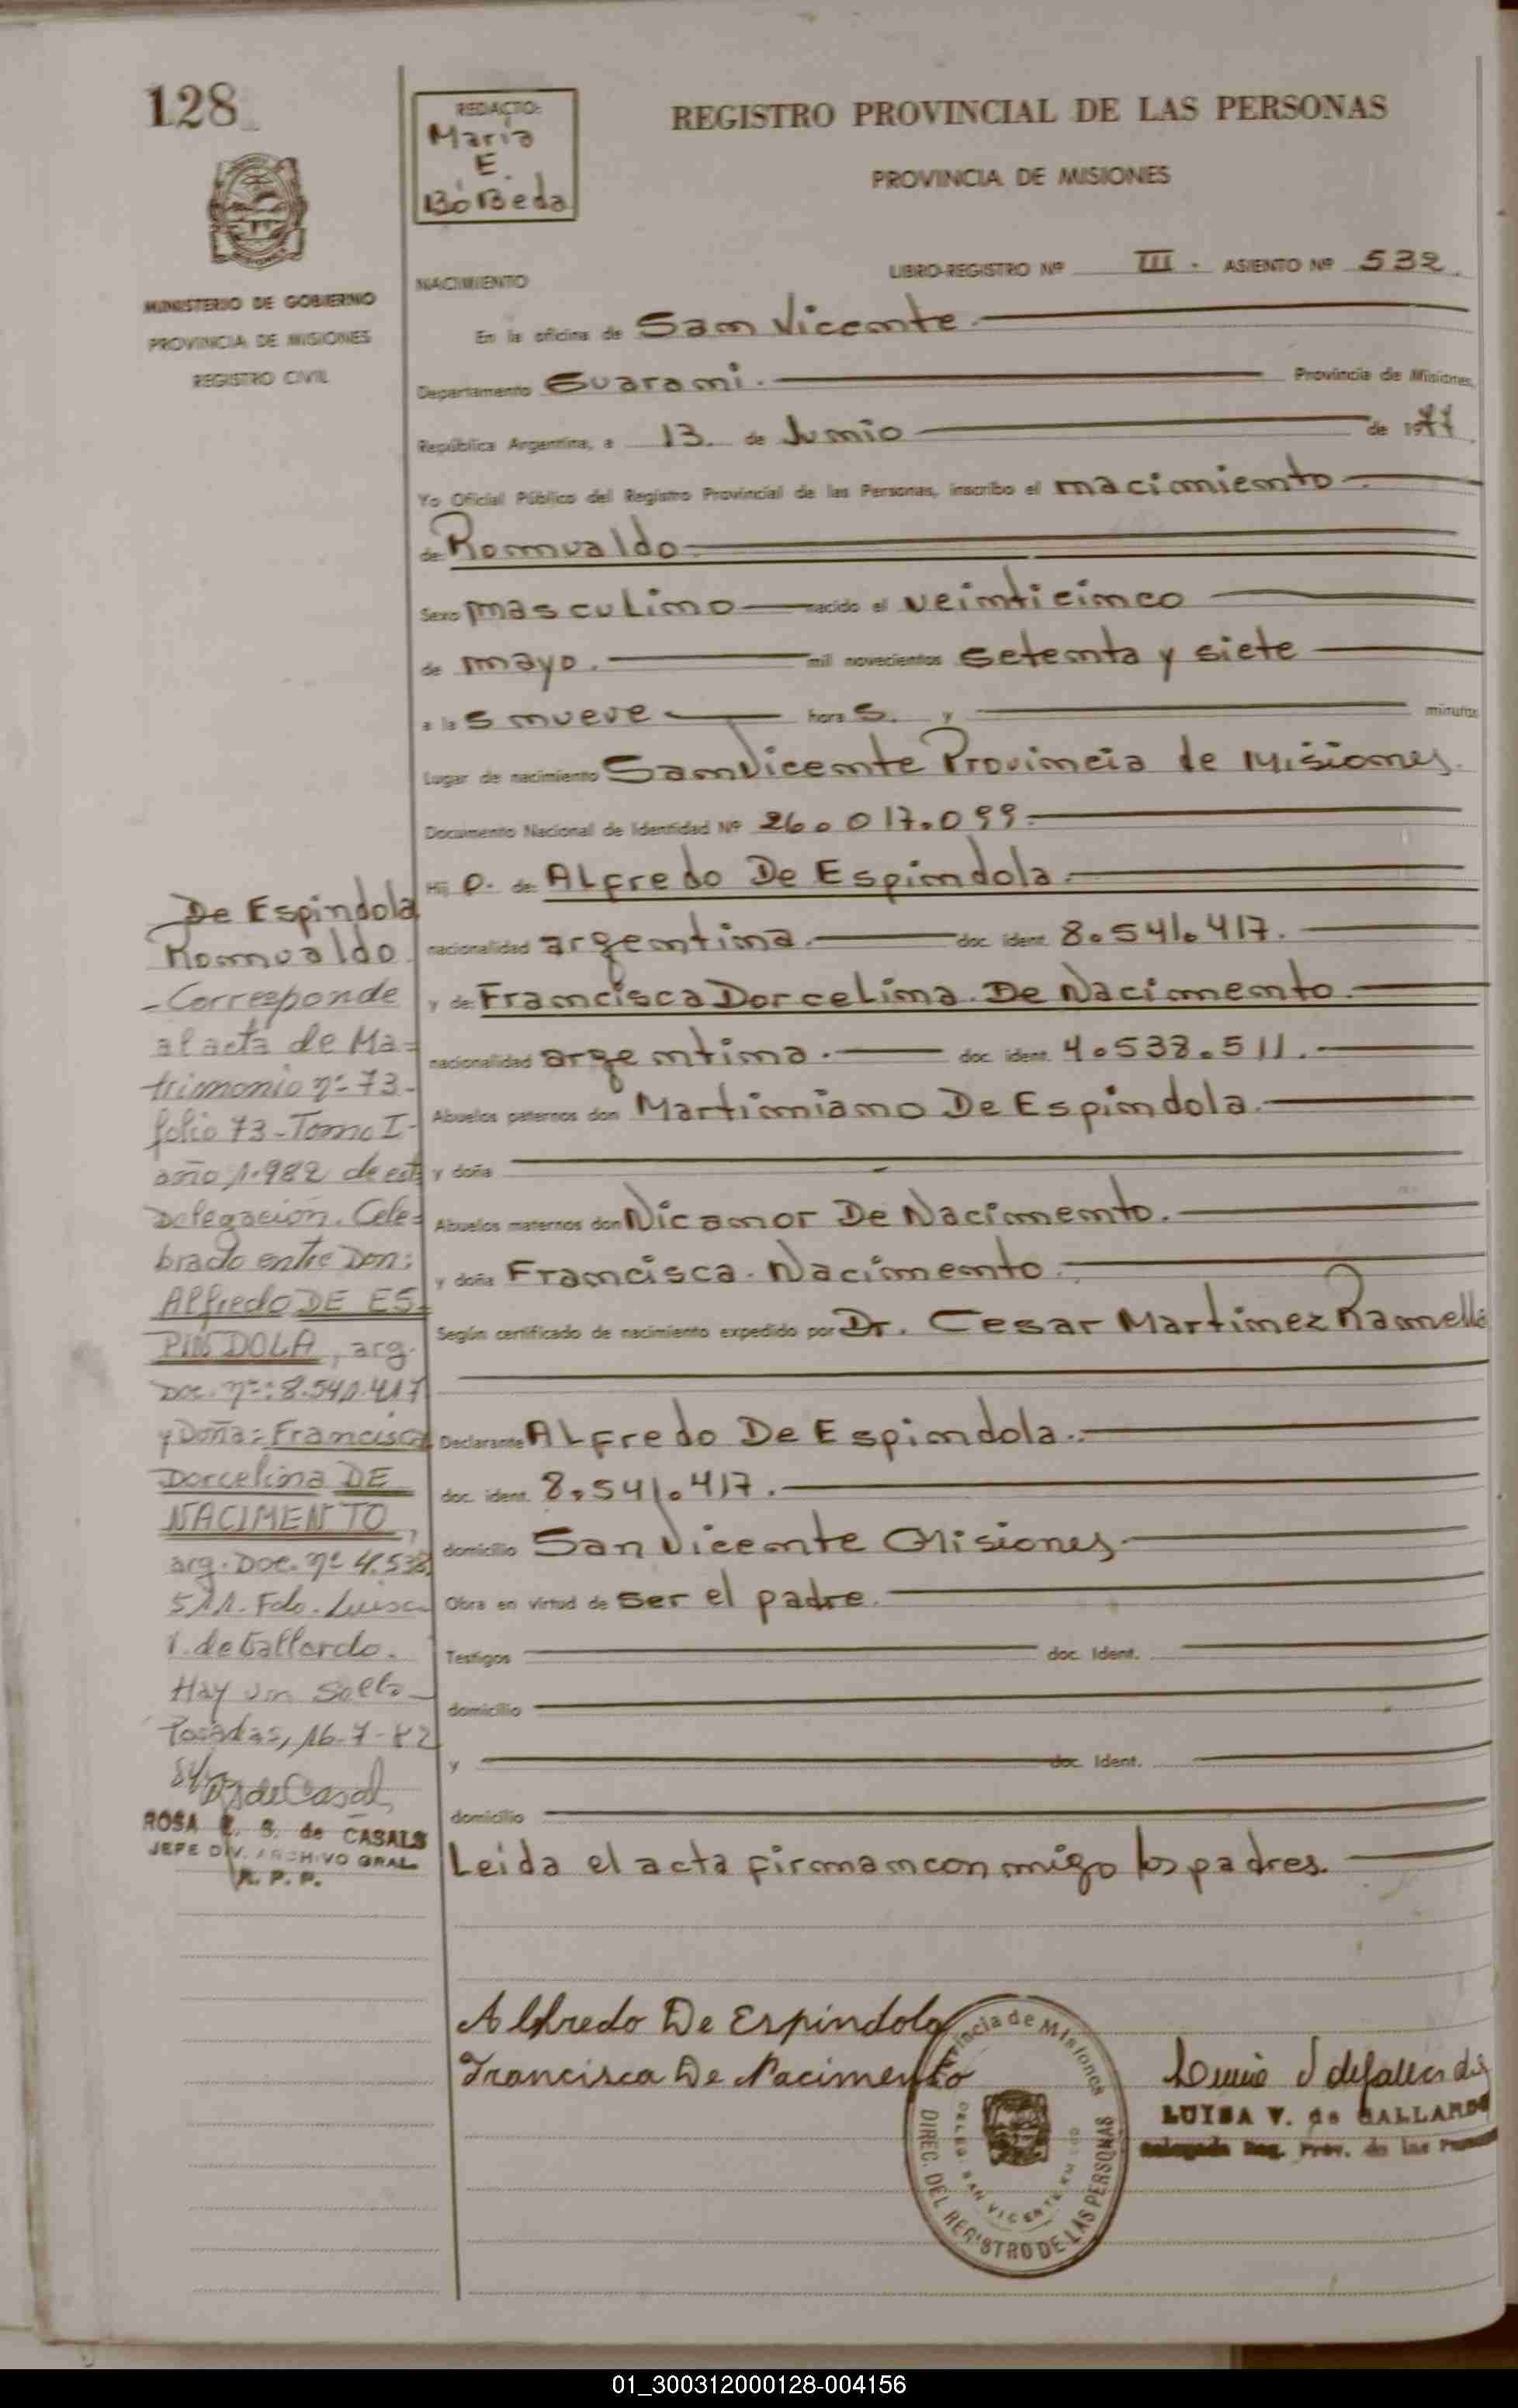 128
REDACTO:
Maria
E.
BórBeda
REGISTRO PROVINCIAL DE LAS PERSONAS
PROVINCIA DE MISIONES
MINISTERIO DE GOBIERNO
PROVINCIA DE MISIONES
REGISTRO CIVIL
NACIMIENTO
LIBRO-REGISTRO Nº III - ASIENTO Nº 532
En la oficina de San Vicente
Departamento Guarani. Provincia de Misiones,
República Argentina, a 13. de Junio de 1977
Yo Oficial Público del Registro Provincial de las Personas, inscribo el nacimiento
de Romualdo
Sexo masculino nacido el veinticinco
de mayo. mil novecientos setenta y siete
a las nueve horas. y minutos
Lugar de nacimiento San Vicente Provincia de Misiones
Documento Nacional de Identidad Nº 26.017.099
Hijo. de: Alfredo De Espindola
nacionalidad argentina. doc. ident. 8.541.417.
y de: Francisca Dorcelina De Nacimento
nacionalidad argentina. doc. ident. 4.538.511.
Abuelos paternos don Martimiano De Espindola.
y doña
Abuelos maternos don Nicanor De Nacimento.
y doña Francisca. Nacimento.
Según certificado de nacimiento expedido por Dr. Cesar Martinez Ramella
Declarante Alfredo De Espindola.
doc. ident. 8.541.417.
domicilio San Vicente Misiones
Obra en virtud de ser el padre.
Testigos doc. Ident.
domicilio
y doc. Ident.
domicilio
Leida el acta firman conmigo los padres.
De Espindola
Romualdo
- Corresponde
al acta de Ma-
trimonio nº 73-
folio 73-Tomo I-
año 1.982 de esta
Delegación. Cele-
brado entre Don:
Alfredo DE ES-
PINDOLA, arg.
Doc. nº: 8.541.417
y Doña: Francisca
Dorcelina DE
NACIMENTO,
arg. Doc. nº 4.538.
511. Fdo. Luisa
V. de Gallardo.
Hay un sello-
Posadas, 16-7-82
de Casals
ROSA E. S. de CASALS
JEFE DIV. ARCHIVO GRAL.
R. P. P.
Alfredo De Espindola
Francisca De Nacimento
Provincia de Misiones
DIREC. DEL REGISTRO DE LAS PERSONAS
DELEG. SAN VICENTE
LUISA V. de GALLARDO
Delegada Reg. Prov. de las Personas
01_300312000128-004156